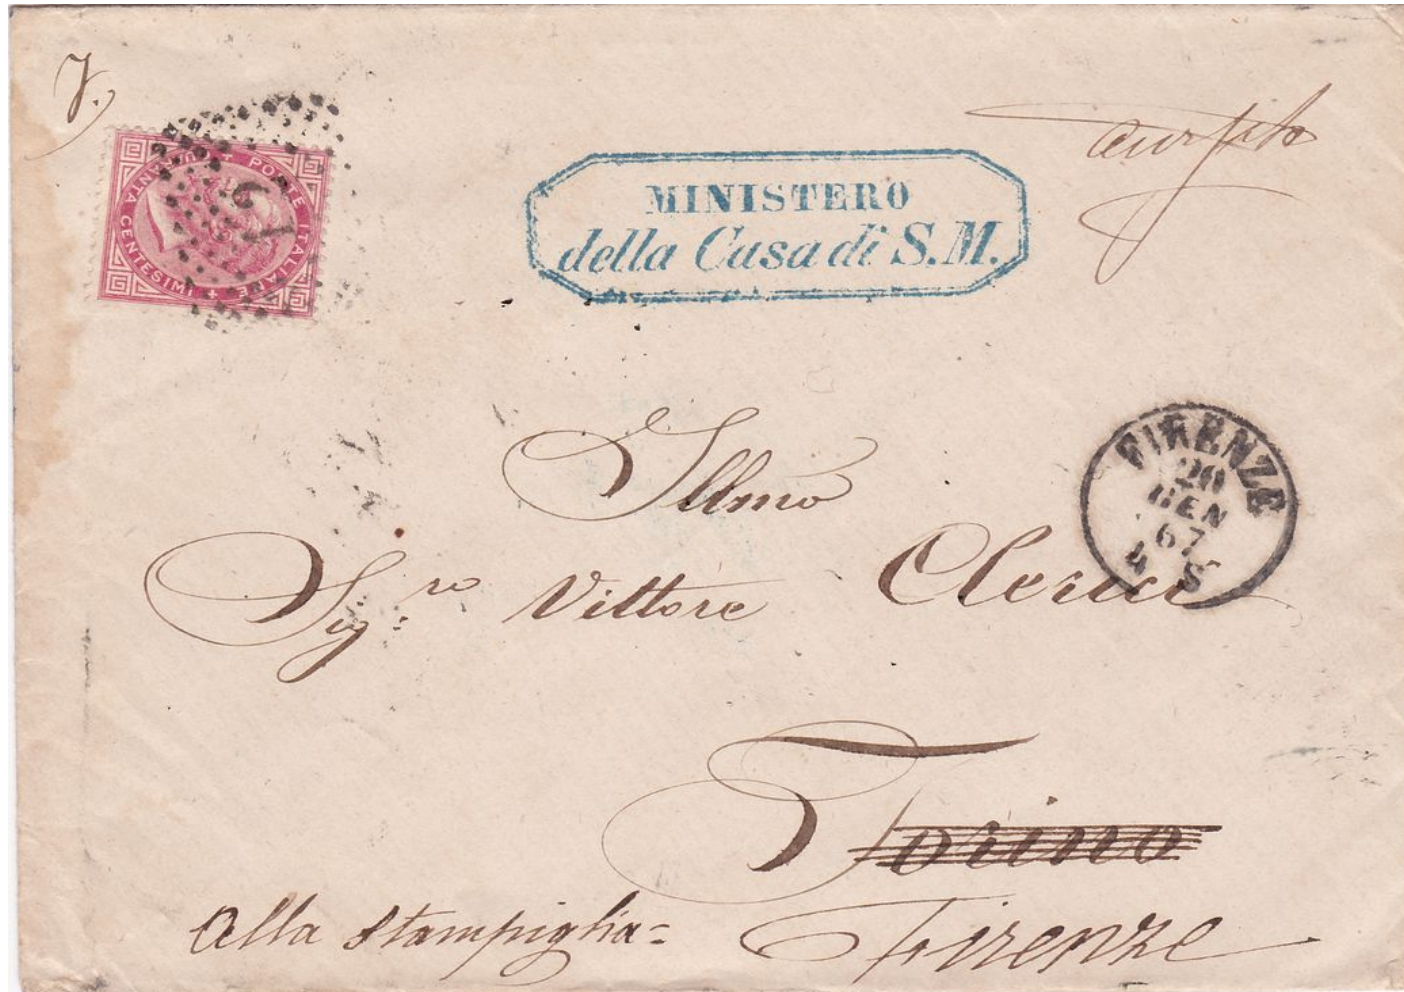 POSTE ITALIANE + QUARANTA CENTESIMI +
MINISTERO
della Casa di S.M.
FIRENZE
20
GEN
67
4 S
Illmo
Sig:ro Vittore Clerici
Torino
Alla Stampiglia= Firenze